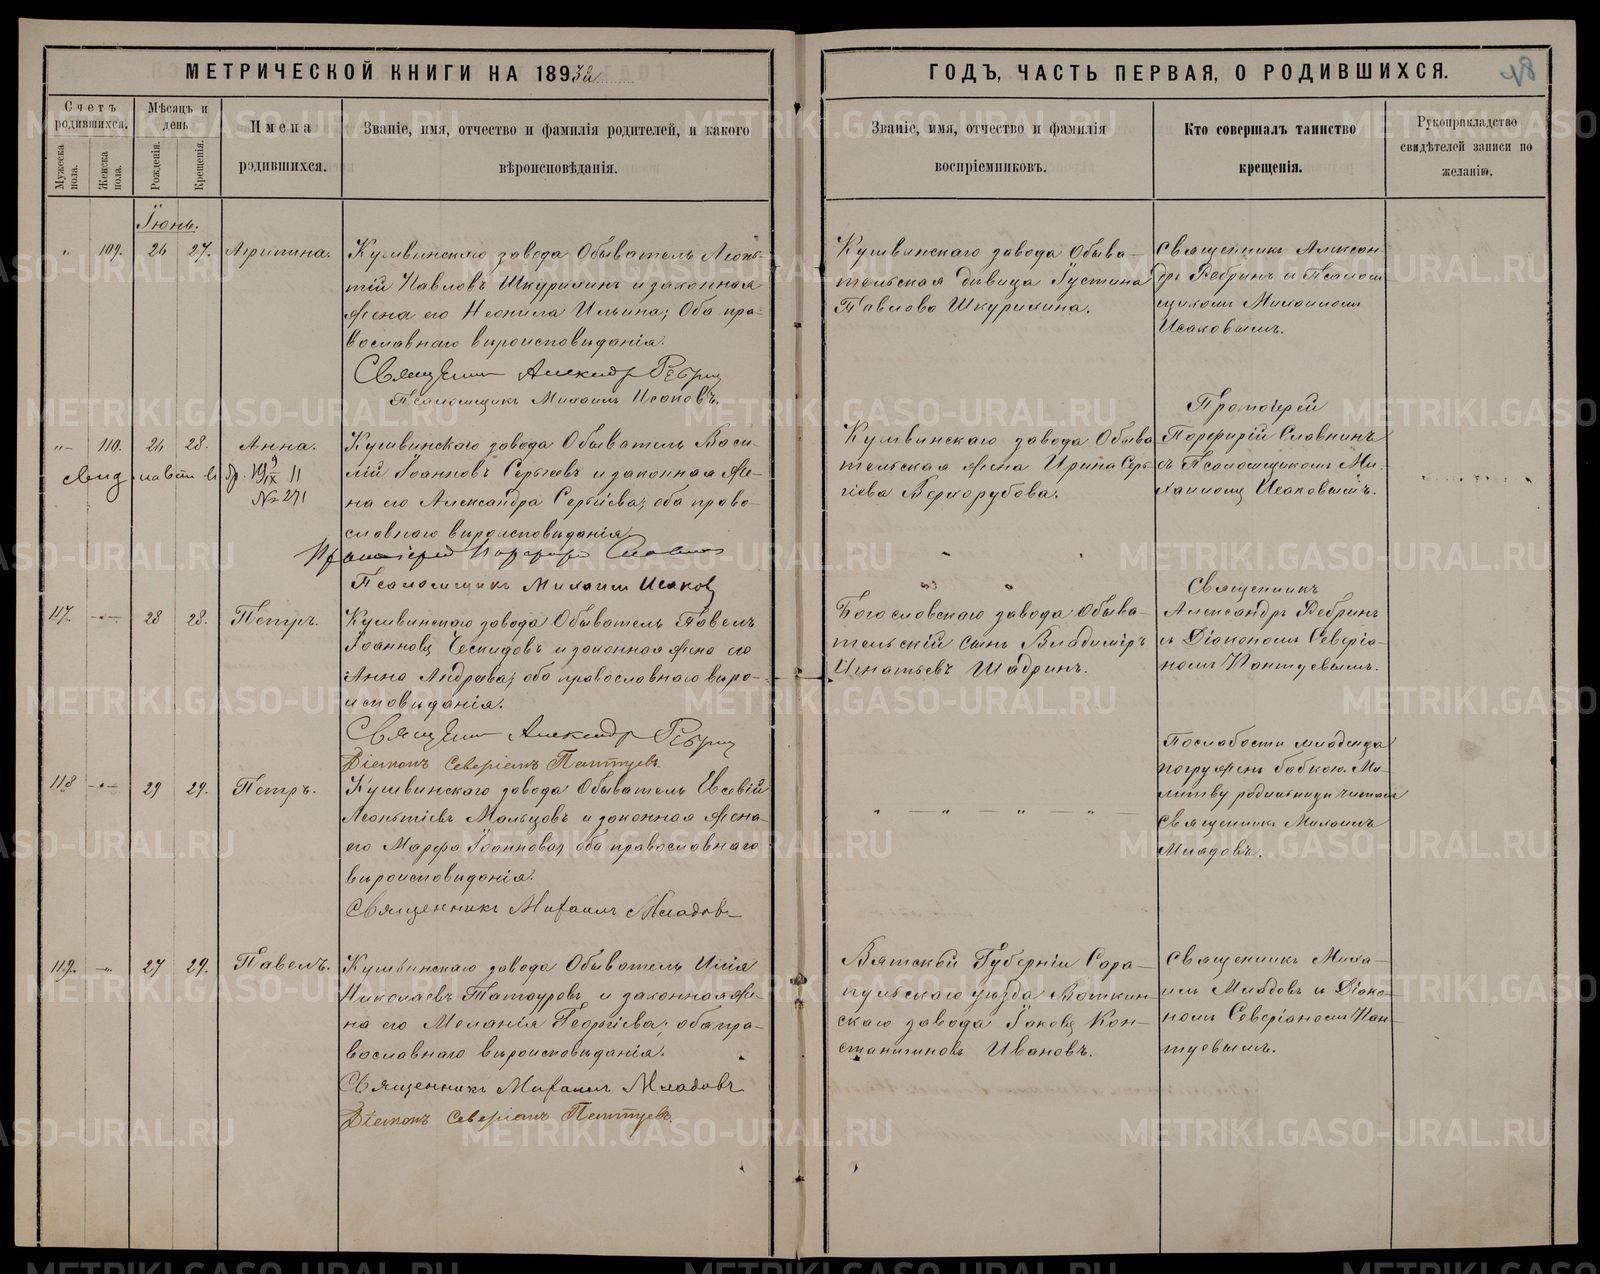 МЕТРИЧЕСКОЙ КНИГИ НА 1893й
ГОДЪ, ЧАСТЬ ПЕРВАЯ, О РОДИВШИХСЯ.
Счетъ родившихся.
Мужеска пола.
Женска пола.
Мѣсяцъ и день
Рожденія.
Крещенія.
Имена
родившихся.
Званіе, имя, отчество и фамилія родителей, и какого
вѣроисповѣданія.
Званіе, имя, отчество и фамилія
воспріемниковъ.
Кто совершалъ таинство
крещенія.
Рукоприкладство
свидѣтелей записи по
желанію.
Іюнь.
109. 26 27. Агрипина.
Кушвинскаго завода Обыватель Леонь-
тій Павловъ Шкуриминъ и законная
жена его Неонила Ильина; Оба пра-
вославнаго вѣроисповѣданія.
Священникъ Александр Ребрин
Псаломщикъ Михаилъ Исаковъ.
Кушвинскаго завода Обыва-
тельская дѣвица Іустина
Павлова Шкуримина.
Священникъ Алексан-
дръ Ребринъ и Псалом
щикомъ Михаиломъ
Исаковымъ.
110. 26 28. Анна.
№ 271
Кушвинскаго завода Обыватель Васи-
лій Іоанновъ Сергѣевъ и законная же-
на его Александра Сергѣева; оба право-
славнаго вѣроисповѣданія
Протоіерей Порфирій Славнин
Псаломщикъ Михаилъ Исаковъ
Кушвинскаго завода Обыва
тельская жена Ирина Серь
гіева Верхорубова.
Протоіерей
Порфирій Славнинъ
съ Псаломщикомъ Ми-
хаиломъ Исаковымъ.
117. 28 28. Петръ.
Кушвинскаго завода Обыватель Павелъ
Іоанновъ Ческидовъ и законная жена его
Анна Андреева; оба православнаго вѣро-
исповѣданія.
Священникъ Александр Ребрин
Діаконъ Северіанъ Пантуевъ
Богословскаго завода Обыва-
тельскій сынъ Владиміръ
Игнатьевъ Шадринъ.
Священникъ
Александръ Ребринъ
съ Діакономъ Северіа-
номъ Пантуевымъ.
118 29 29. Петръ.
Кушвинскаго завода Обыватель Евсевій
Леонтіевъ Мальцовъ и законная жена
его Марфа Іоаннова; оба православнаго
вѣроисповѣданія.
Священникъ Михаилъ Младовъ
По слабости младенца
погруженъ бабкою. Мо-
литву родильницѣ читалъ
Священникъ Михаилъ
Младовъ.
119. 27 29. Павелъ.
Кушвинскаго завода Обыватель Илія
Николаевъ Татауровъ, и законная же-
на его Меланія Георгіева; оба пра-
вославнаго вѣроисповѣданія.
Священникъ Михаилъ Младовъ
Діаконъ Северіанъ Пантуевъ
Вятской Губерніи Сара-
пульскаго уѣзда Воткин-
скаго завода Іаковъ Кон-
стантиновъ Ивановъ.
Священникъ Миха-
илъ Младовъ и Діако-
номъ Северіаномъ Пан-
туевымъ.
METRIKI.GASO-URAL.RU